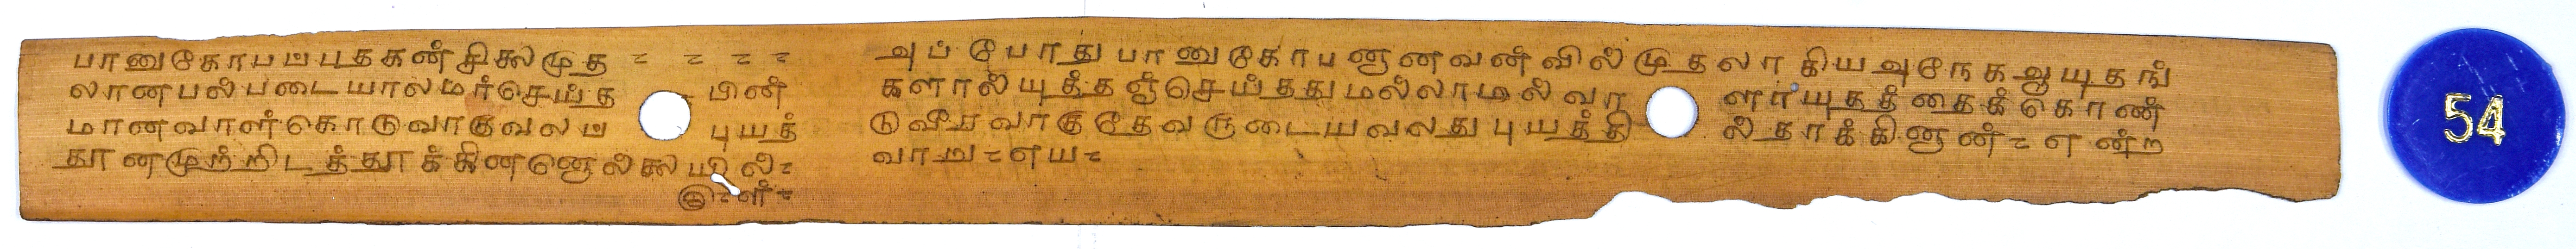 பானுகோபப்புதகன்சிலைமுத = = = =
லானபல்படையாலமர்செய்த - பின்
மானவாள்கொடுவாகுவலப் புயத்
தூனமுற்றிடத்தூக்கினனொல்லையில்=
இ=ள்=
அப்போதுபானுகோபனானவன்வில்முதலாகியஅநேகஆயுதங்
களால்யுத்தஞ்செய்ததுமல்லாமல்வா ளாயுதத்தைக்கொண்
டுவீரவாகுதேவருடையவலதுபுயத்தி ல்தாக்கினான்=என்ற
வாறு=எய=
54